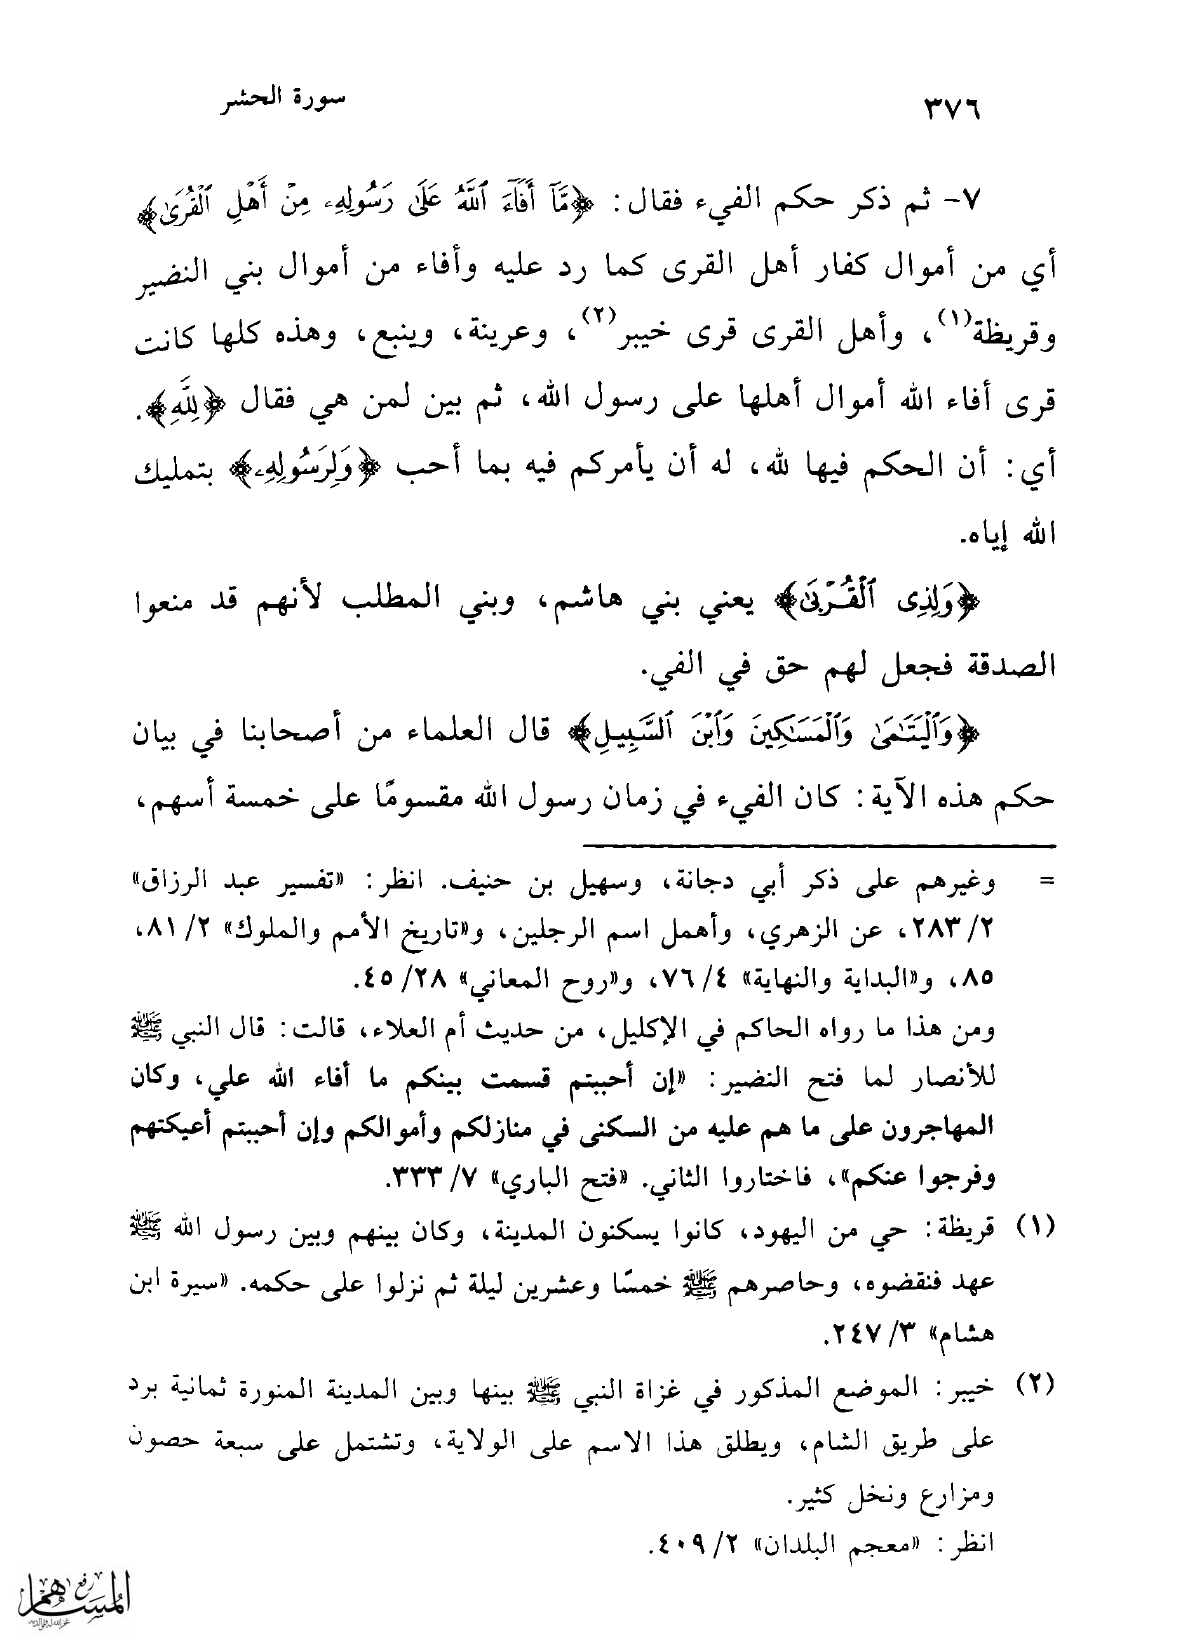 ٣٧٦
سورة الحشر
٧- ثم ذكر حكم الفيء فقال: ﴿مَّآ أَفَآءَ ٱللَّهُ عَلَىٰ رَسُولِهِۦ مِنْ أَهْلِ ٱلْقُرَىٰ﴾
أي من أموال كفار أهل القرى كما رد عليه وأفاء من أموال بني النضير
وقريظة(١)، وأهل القرى قرى خيبر(٢)، وعرينة، وينبع، وهذه كلها كانت
قرى أفاء الله أموال أهلها على رسول الله، ثم بين لمن هي فقال ﴿لِلَّهِ﴾.
أي: أن الحكم فيها لله، له أن يأمركم فيه بما أحب ﴿وَلِرَسُولِهِۦ﴾ بتمليك
الله إياه.
﴿وَلِذِى ٱلْقُرْبَىٰ﴾ يعني بني هاشم، وبني المطلب لأنهم قد منعوا
الصدقة فجعل لهم حق في الفي.
﴿وَٱلْيَتَٰمَىٰ وَٱلْمَسَٰكِينَ وَٱبْنَ ٱلسَّبِيلِ﴾ قال العلماء من أصحابنا في بيان
حكم هذه الآية: كان الفيء في زمان رسول الله مقسومًا على خمسة أسهم،
= وغيرهم على ذكر أبي دجانة، وسهيل بن حنيف. انظر: «تفسير عبد الرزاق»
٢/ ٢٨٣، عن الزهري، وأهمل اسم الرجلين، و«تاريخ الأمم والملوك» ٢/ ٨١،
٨٥، و«البداية والنهاية» ٤/ ٧٦، و«روح المعاني» ٢٨/ ٤٥.
ومن هذا ما رواه الحاكم في الإكليل، من حديث أم العلاء، قالت: قال النبي ﷺ
للأنصار لما فتح النضير: «إن أحببتم قسمت بينكم ما أفاء الله علي، وكان
المهاجرون على ما هم عليه من السكنى في منازلكم وأموالكم وإن أحببتم أعيكتهم
وفرجوا عنكم»، فاختاروا الثاني. «فتح الباري» ٧/ ٣٣٣.
(١) قريظة: حي من اليهود، كانوا يسكنون المدينة، وكان بينهم وبين رسول الله ﷺ
عهد فنقضوه، وحاصرهم ﷺ خمسًا وعشرين ليلة ثم نزلوا على حكمه. «سيرة ابن
هشام» ٣/ ٢٤٧.
(٢) خيبر: الموضع المذكور في غزاة النبي ﷺ بينها وبين المدينة المنورة ثمانية برد
على طريق الشام، ويطلق هذا الاسم على الولاية، وتشتمل على سبعة حصون
ومزارع ونخل كثير.
انظر: «معجم البلدان» ٢/ ٤٠٩.